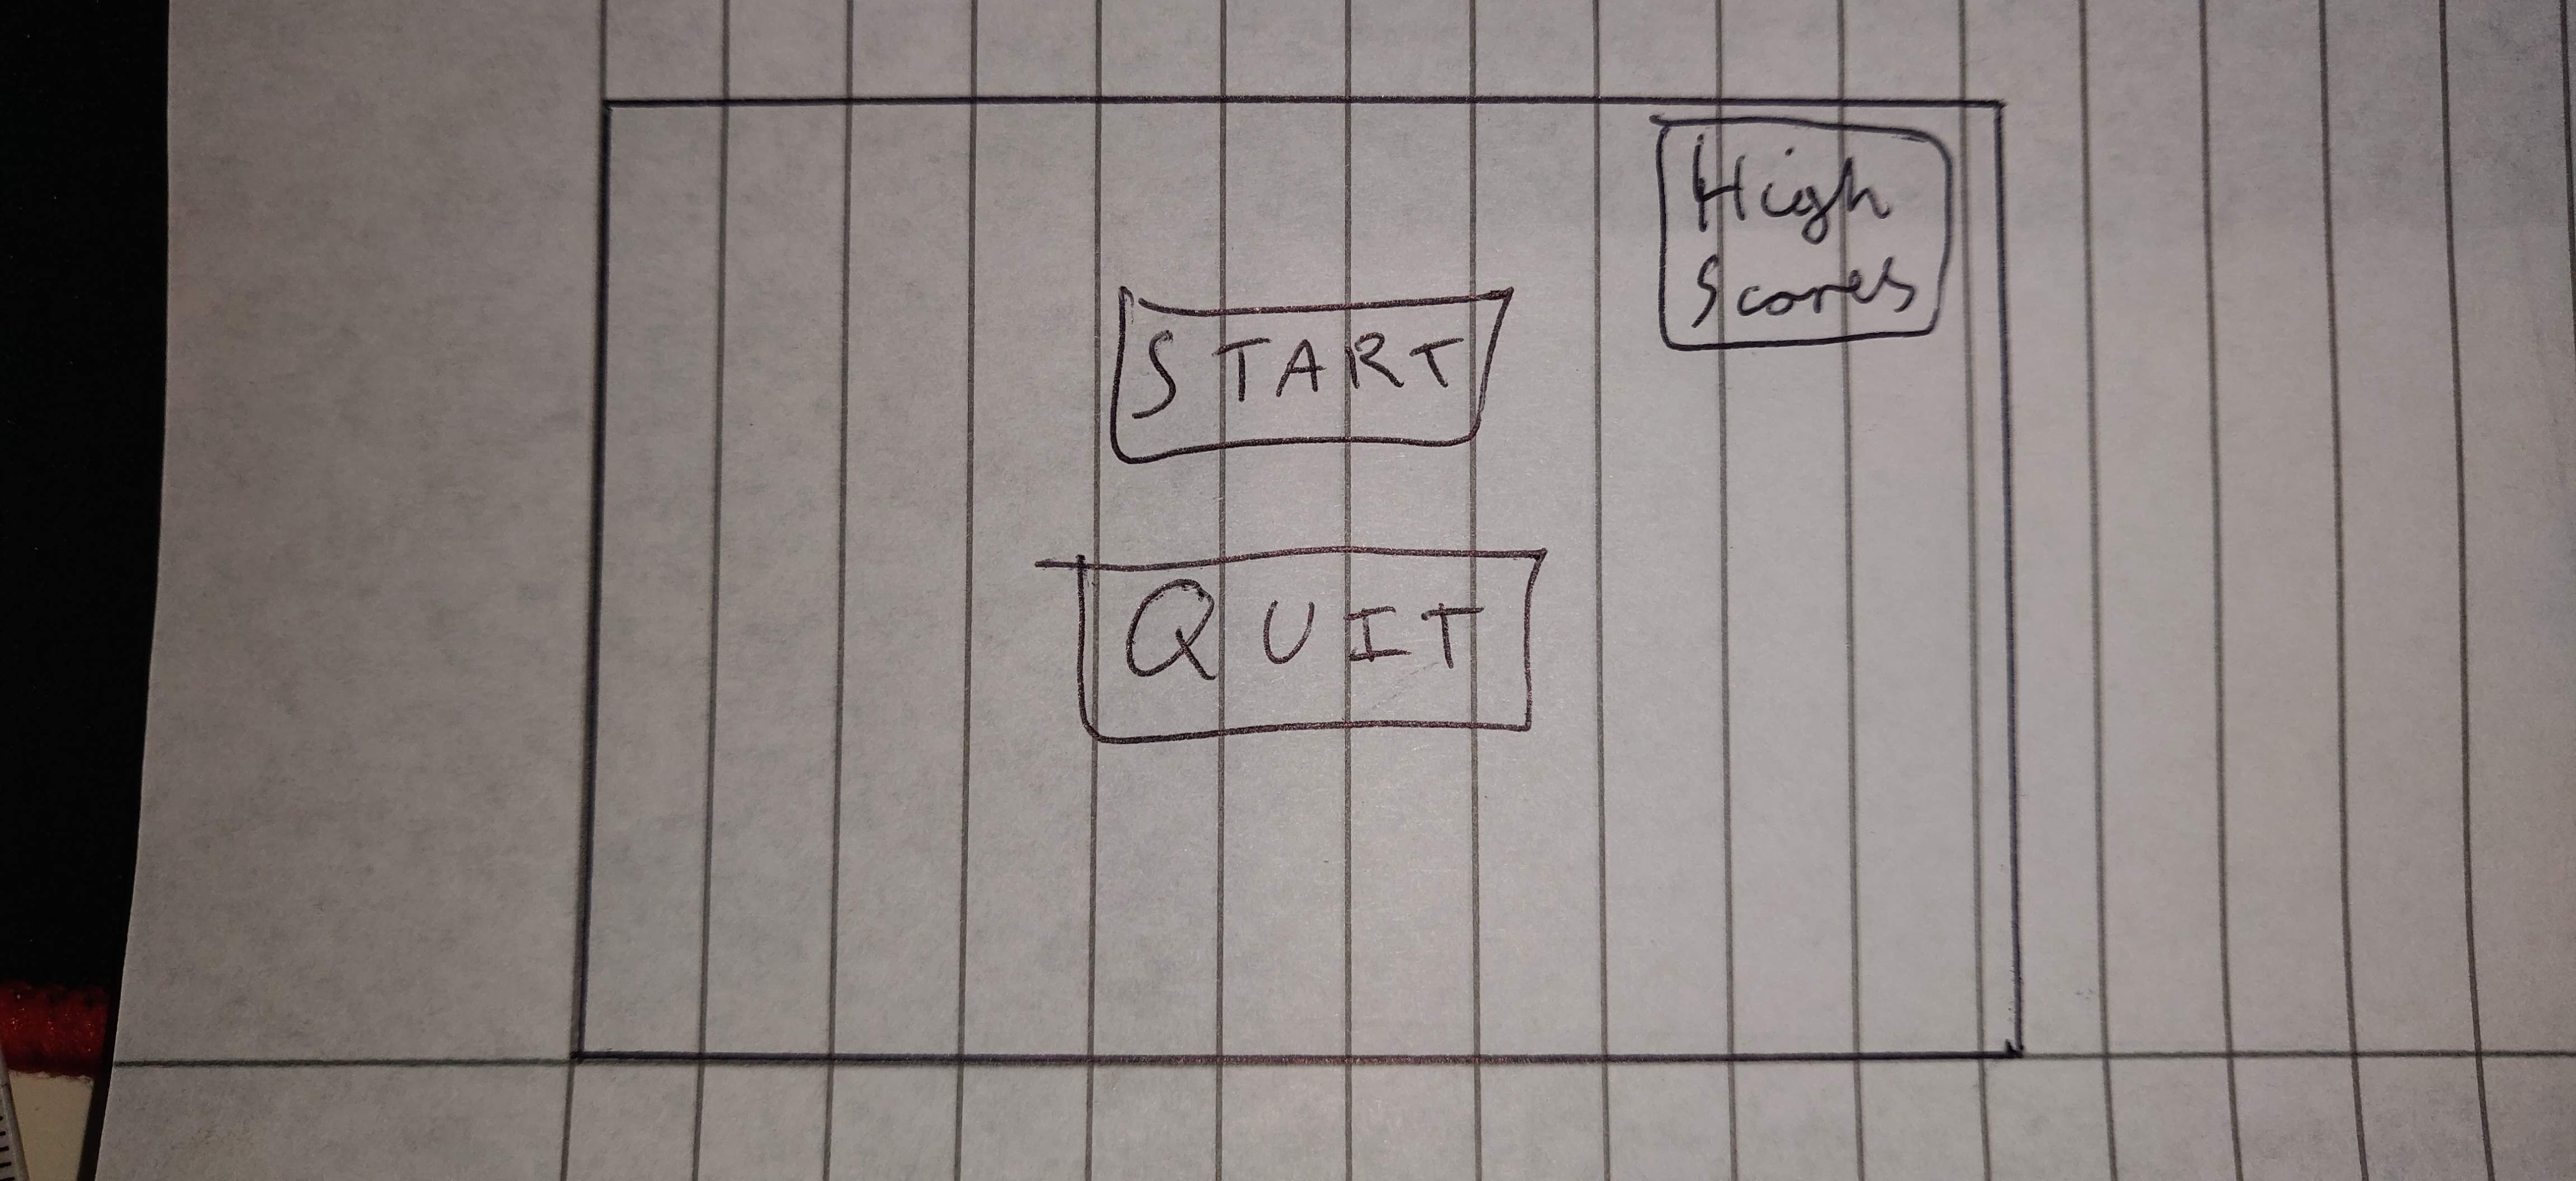 High
Scores
START
QUIT